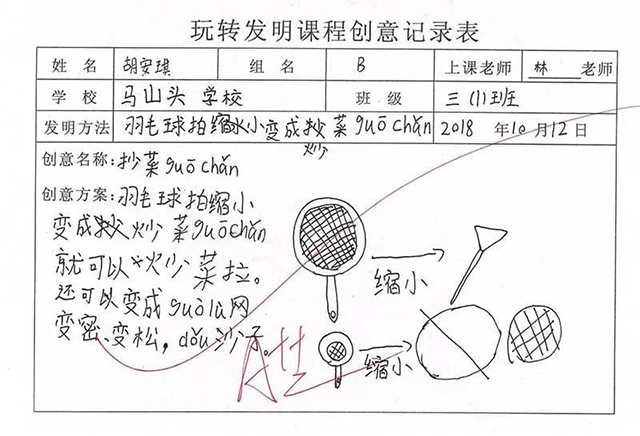 玩转发明课程创意记录表
姓名 胡安琪 组名 B 上课老师 林 老师
学校 马山头 学校 班级 三(1)班
发明方法 羽毛球拍缩小变成炒菜guō chǎn 2018 年10月12日
创意名称:抄菜guō chǎn
创意方案:羽毛球拍缩小
变成炒菜guōchǎn
就可以炒菜拉。
还可以变成guòlǜ网
变密、变松,dǒu沙子。
缩小
缩小
A